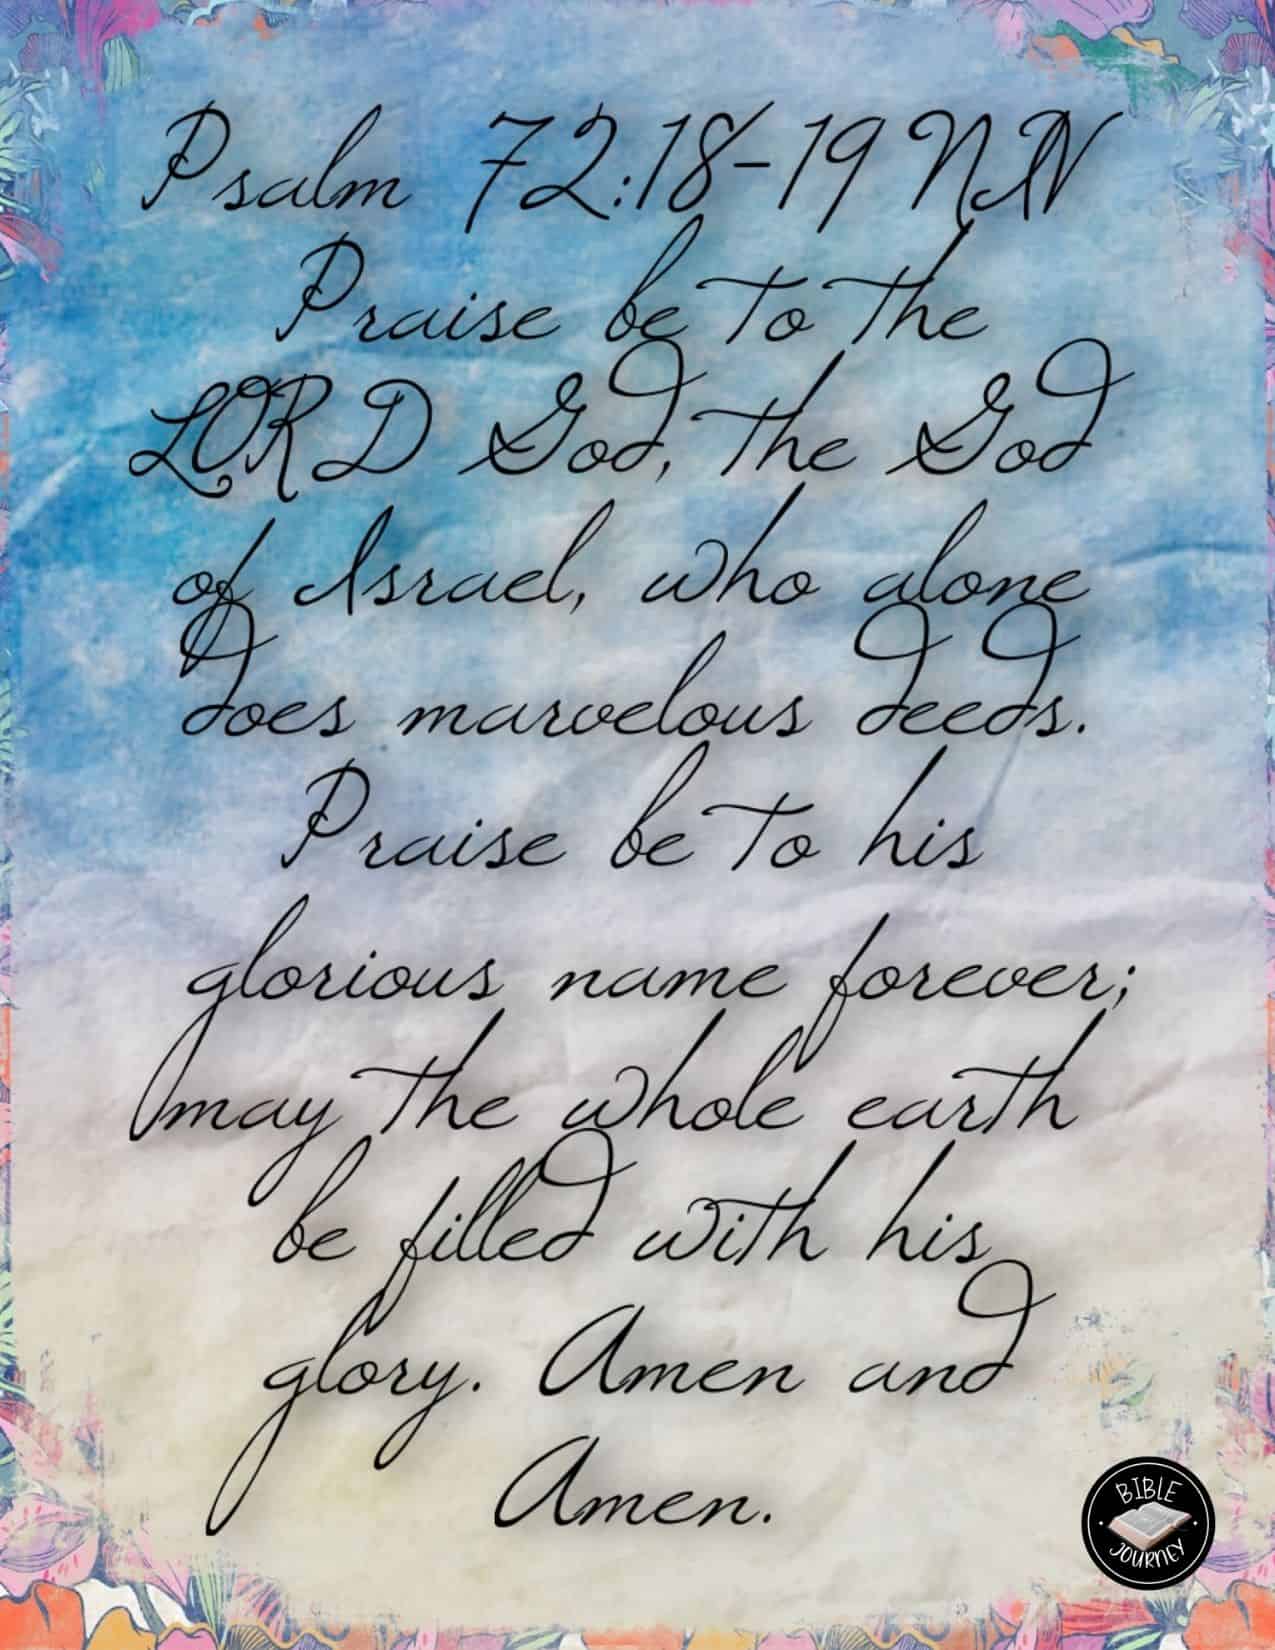 Psalm 72:18-19 NIV
Praise be to the
LORD God, the God
of Israel, who alone
does marvelous deeds.
Praise be to his
glorious name forever;
may the whole earth
be filled with his
glory. Amen and
Amen.
BIBLE
JOURNEY